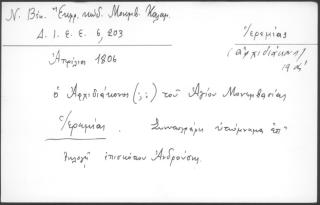 Ν. Βέη. Ἔκφρ. κώδ. Μονεμβ. Καλαμ.
Δ. Ι. Ε. Ε. 6, 203
Ἱερεμίας
(ἀρχιδιάκων)
19 αἰ
Ἀπρίλιος 1806
ὁ Ἀρχιδιάκονος (;;) τοῦ Ἁγίου Μονεμβασίας
Ἱερεμίας. Συνυπογράφει ὑπόμνημα ἐπ'
ἐκλογῇ ἐπισκόπου Ἀνδρούσης.